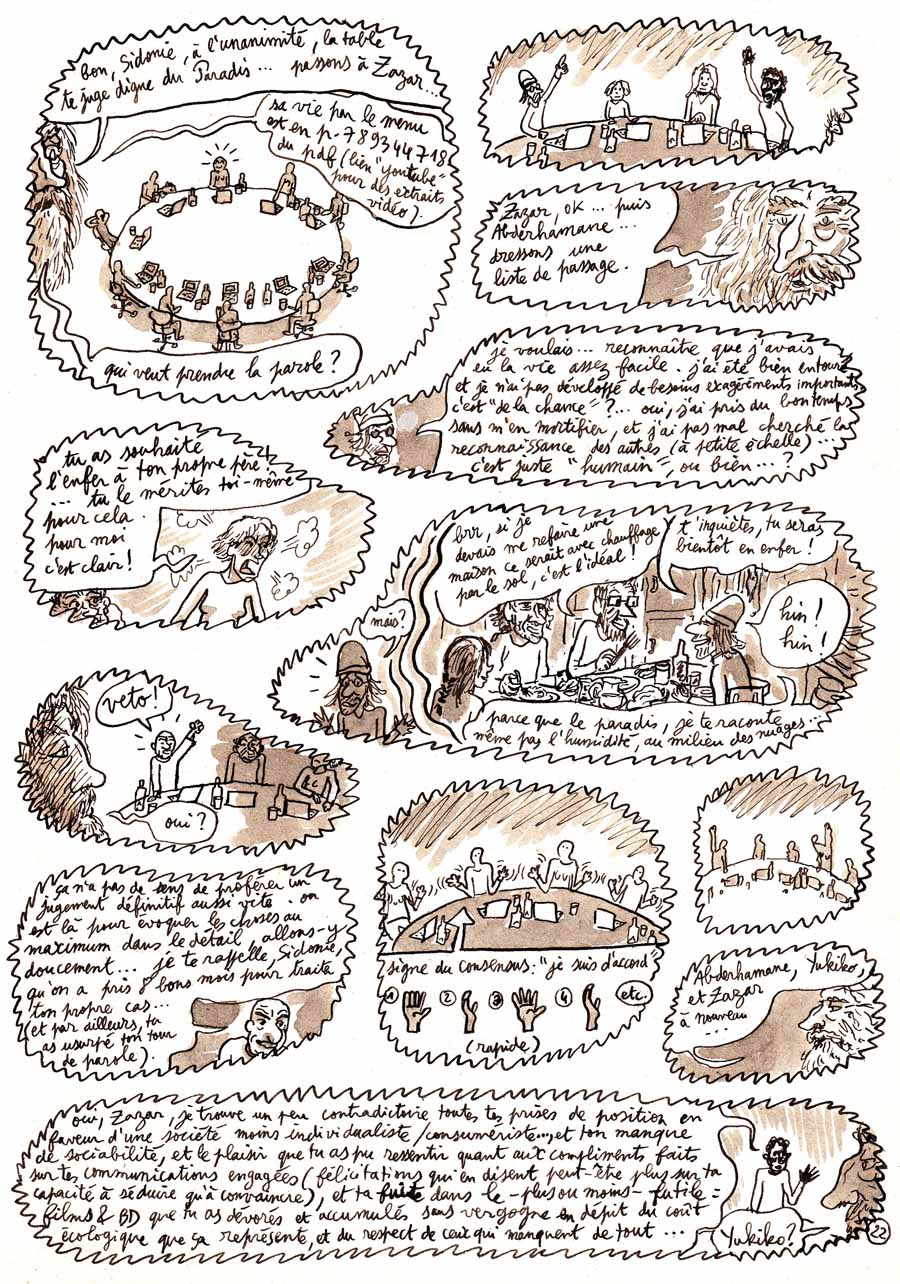 bon, Sidonie, à l'unanimité, la table
te juge digne du Paradis... passons à Zazar...
sa vie par le menu
est en p. 789344718
du pdf (lien "youtube"
pour des extraits
vidéo).
qui veut prendre la parole ?
Zazar, OK... puis
Abderhamane...
dressons une
liste de passage.
je voulais... reconnaître que j'avais
eu la vie assez facile. j'ai été bien entouré
et je n'ai pas développé de besoins exagéréments importants
c'est "de la chance" ?... oui, j'ai pris du bon temps
sans m'en mortifier, et j'ai pas mal cherché la
reconnaissance des autres (à petite échelle)...
c'est juste "humain", ou bien... ?
tu as souhaité
l'enfer à ton propre père !
... tu le mérites toi-même
pour cela.
pour moi
c'est clair !
mais ?
brr, si je
devais me refaire une
maison ce serait avec chauffage
par le sol, c'est l'idéal !
t'inquiètes, tu seras
bientôt en enfer !
hin !
hin !
parce que le paradis, je te raconte
même pas l'humidité, au milieu des nuages...
veto !
oui ?
ça n'a pas de sens de proférer un
jugement définitif aussi vite. on
est là pour évoquer les choses au
maximum dans le détail, allons-y
doucement... je te rappelle, Sidonie,
qu'on a pris 8 bons mois pour traiter
ton propre cas...
(et par ailleurs, tu
as usurpé ton tour
de parole).
signe du consensus : "je suis d'accord"
1 2 3 4 etc.
(rapide)
Abderhamane, Yukiko,
et Zazar
à nouveau
...
oui, Zazar, je trouve un peu contradictoire toutes tes prises de position en
faveur d'une société moins individualiste/consumériste..., et ton manque
de sociabilité, et le plaisir que tu as pu ressentir quant aux compliments faits
sur tes communications engagées (félicitations qui en disent peut-être plus sur ta
capacité à séduire qu'à convaincre), et ta fuite dans le - plus ou moins - futile :
films & BD que tu as dévorés et accumulés sans vergogne en dépit du coût
écologique que ça représente, et du respect de ceux qui manquent de tout...
Yukiko ?
22